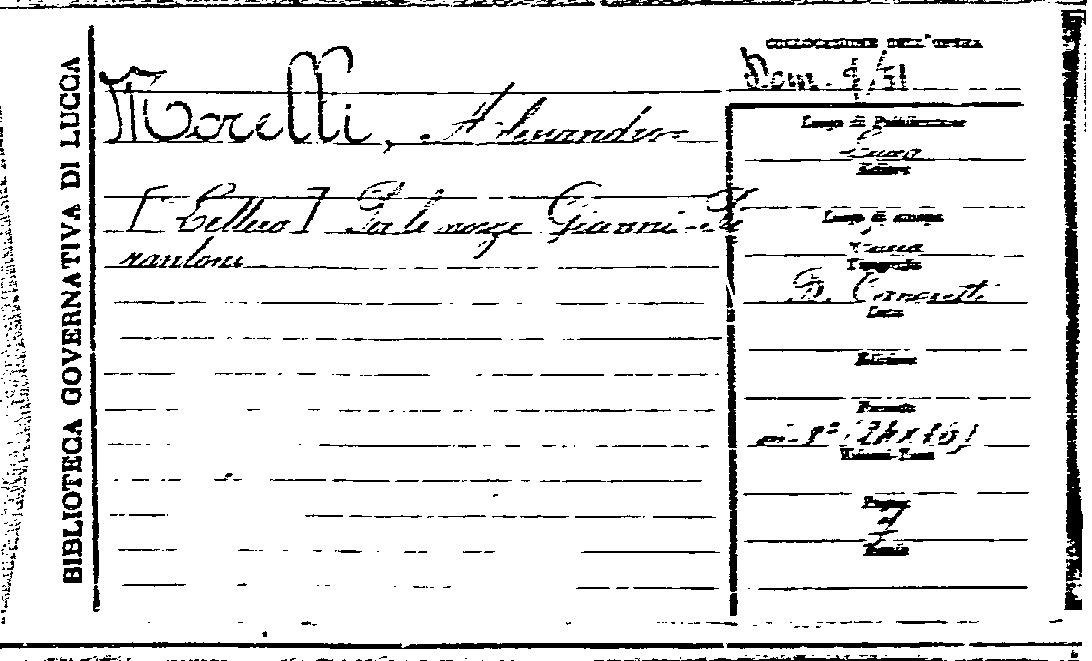 BIBLIOTECA GOVERNATIVA DI LUCCA
COLLOCAZIONE DELL'OPERA
Morelli, Alessandro
[Lettera] Per le nozze Gianni-
Luogo di Pubblicazione
Editore
Luogo di stampa
Tipografo
D. Canovetti
Data
Edizione
Formato
in-8° (24x16)
Volumi-Tomi
Pagine
7
Tavole